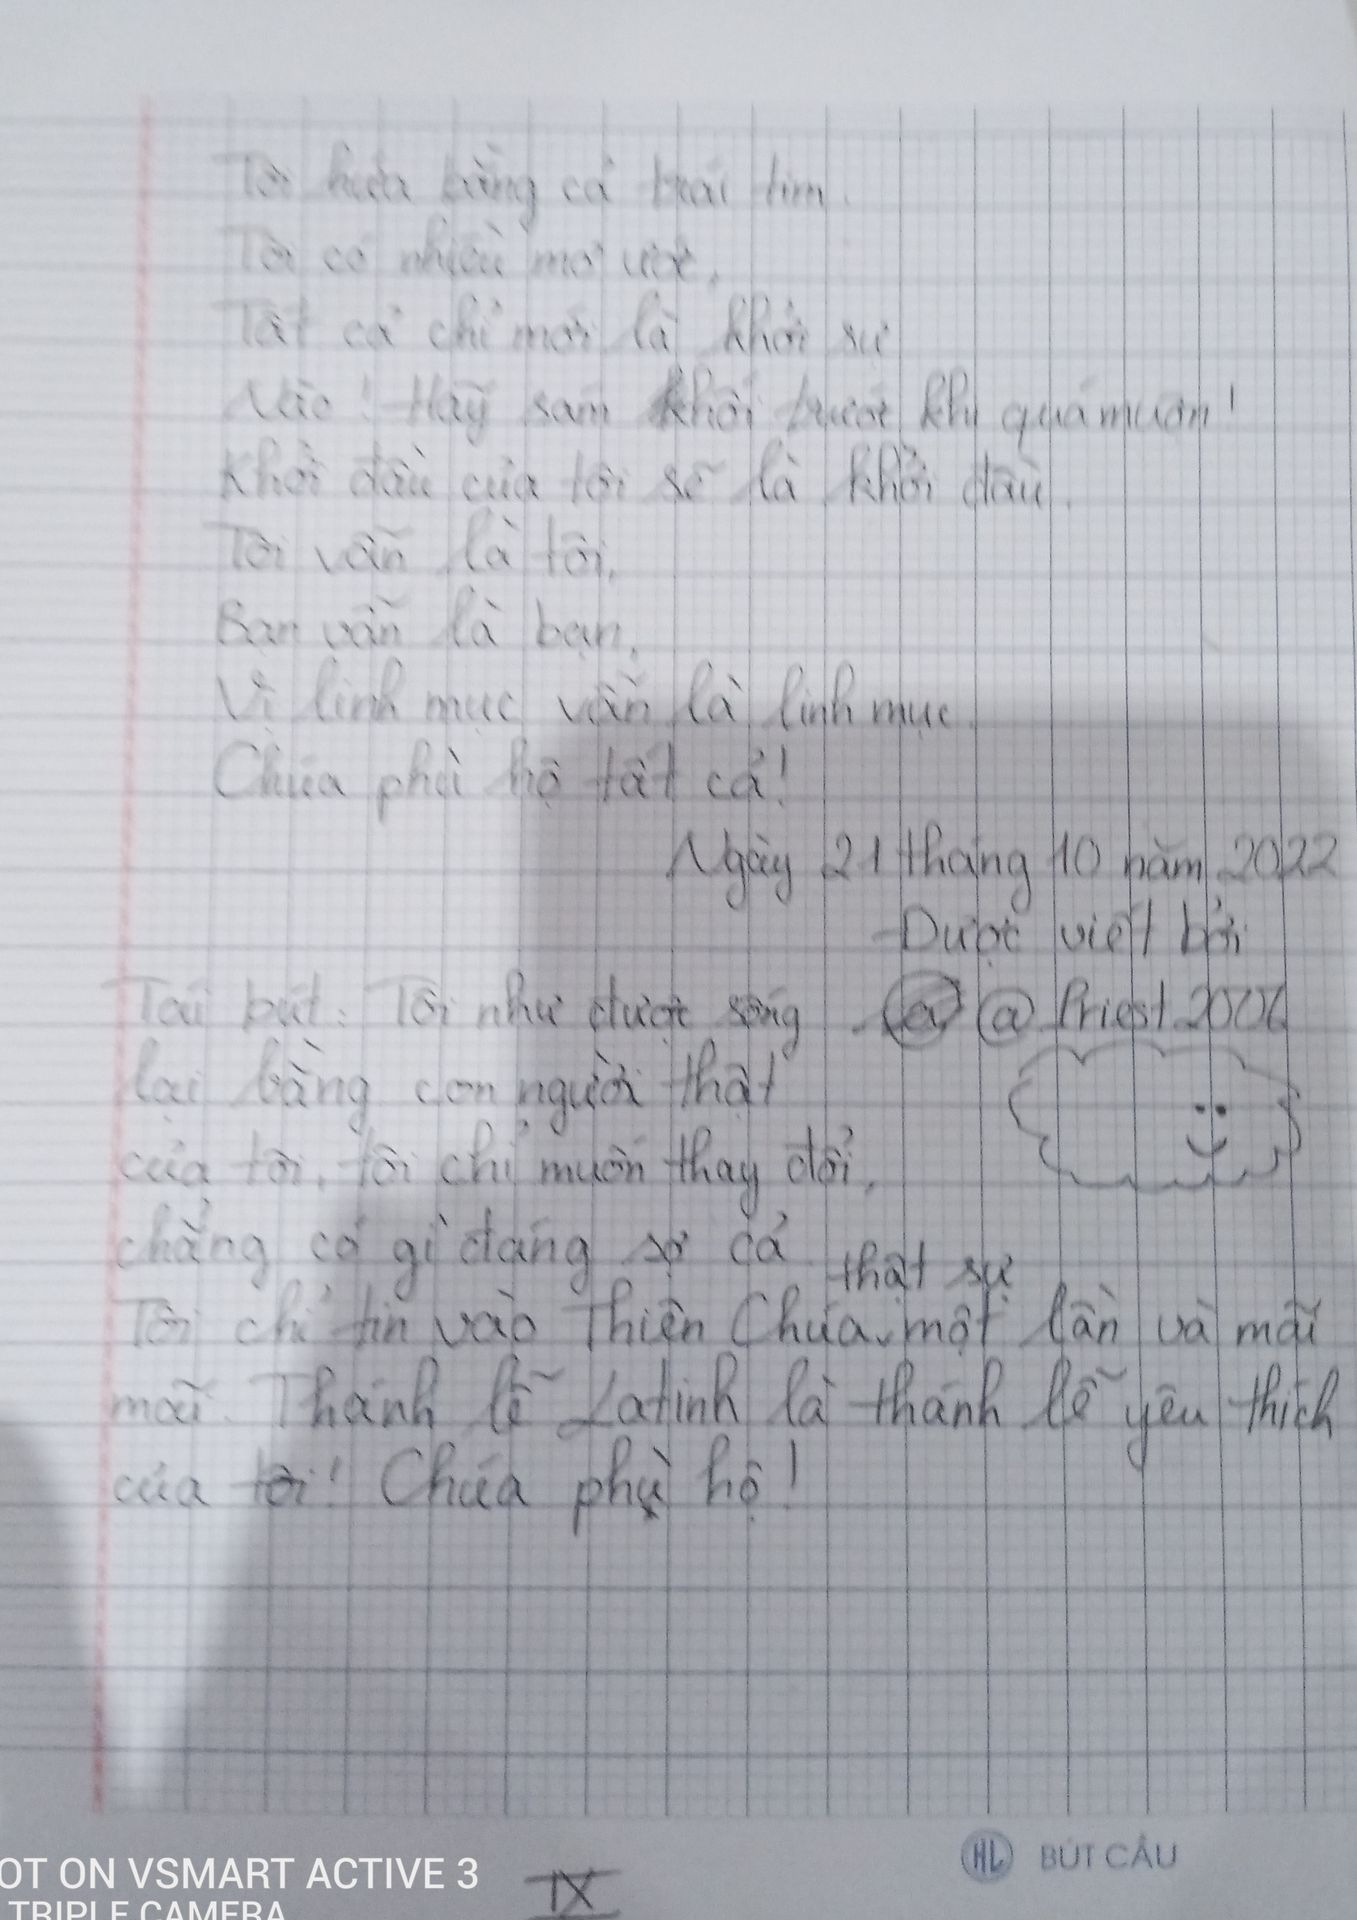 Tôi hứa bằng cả trái tim.
Tôi có nhiều mơ ước,
Tất cả chỉ mới là khởi sự
Nào! Hãy sám hối trước khi quá muộn!
Khởi đầu của tôi sẽ là khởi đầu.
Tôi vẫn là tôi,
Bạn vẫn là bạn,
Vì linh mục vẫn là linh mục.
Chúa phù hộ tất cả!
Ngày 21 tháng 10 năm 2022
Được viết bởi
@Priest
Tái bút: Tôi như được sống
lại bằng con người thật
của tôi, tôi chỉ muốn thay đổi,
chẳng có gì đáng sợ cả
thật sự
Tôi chỉ tin vào Thiên Chúa, một lần và mãi
mãi. Thánh lễ Latinh là thánh lễ yêu thích
của tôi! Chúa phù hộ!
HL BÚT CÂU
OT ON VSMART ACTIVE 3
TRIPLE CAMERA
IX